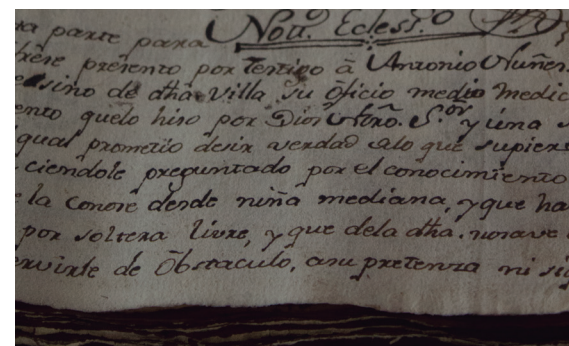 Nott.º Ecless.º
na parte para
presento por Testigo â Antonio Nuñez
vesino de dha Villa su Oficio medio Medic
ento quelo hiso por Dios Ntro. S.or y una s
qual prometio desir verdad alo que supiere
ciendole preguntado por el conocimiento
la conose desde niña mediana, y que ha
por soltera livre, y que dela dha. nosave
ervirle de Obstaculo, asu pretenza ni si